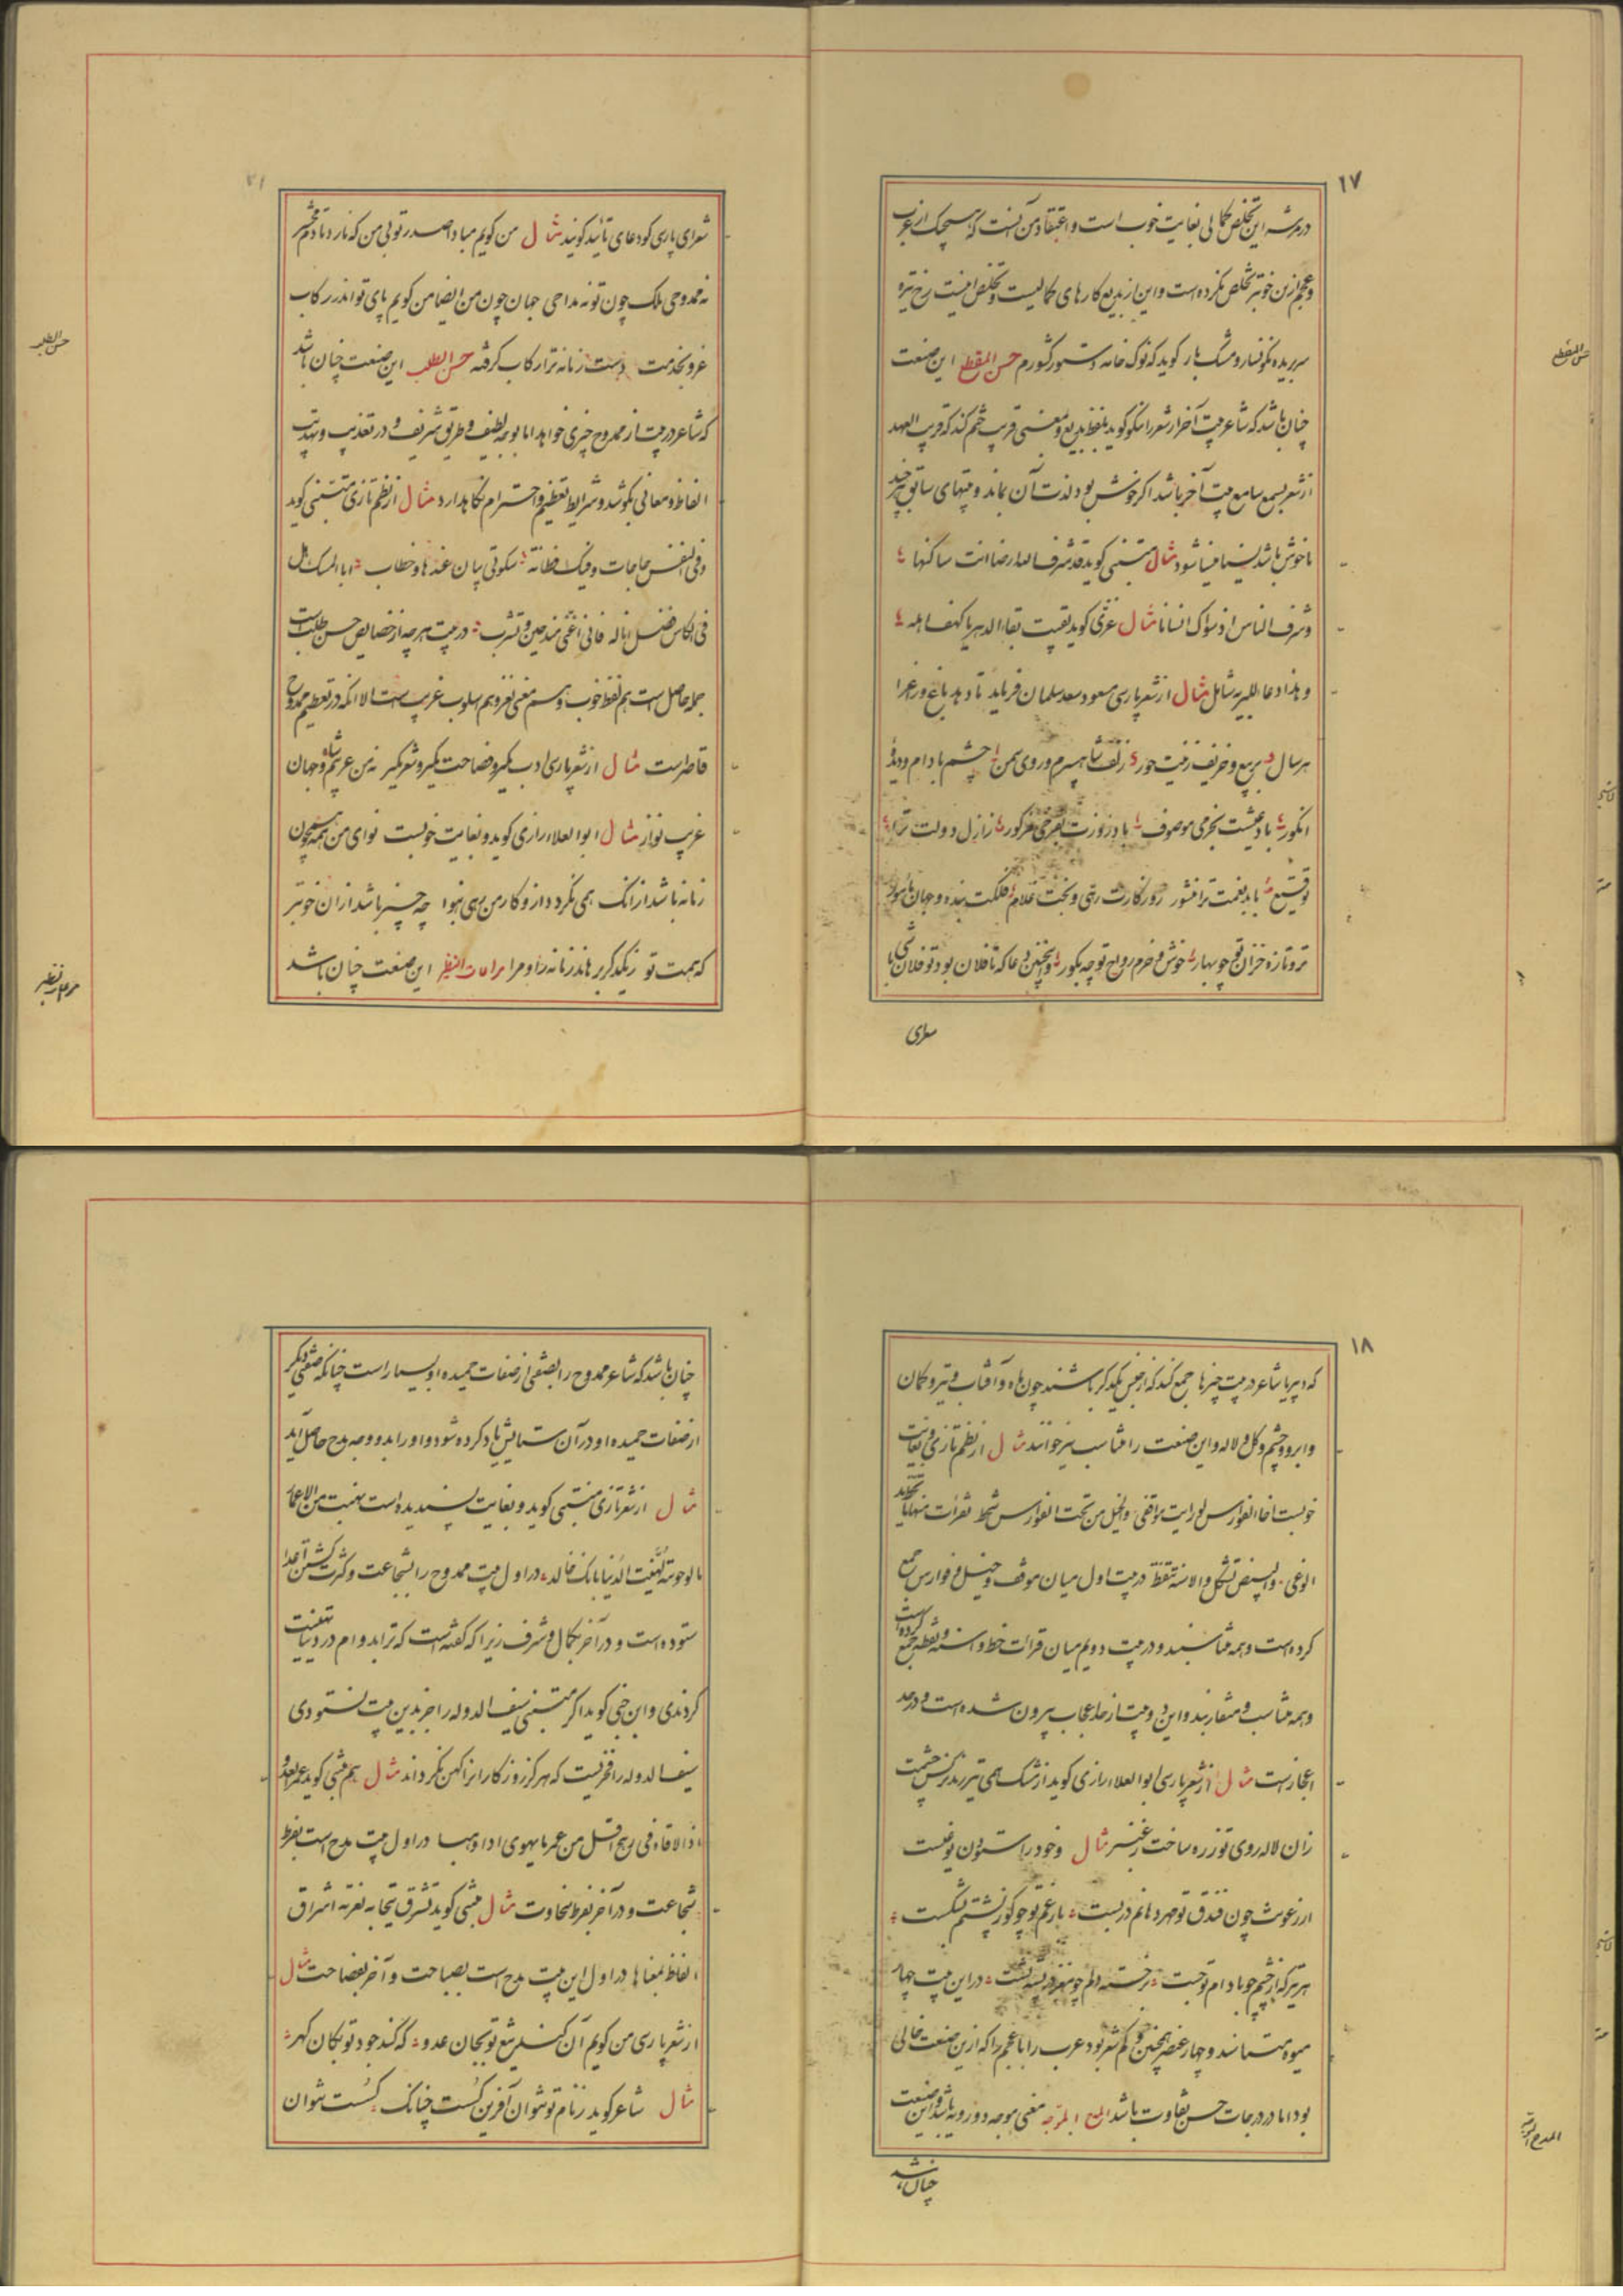 ۱۷
در مرثیه این تخلص کمالی بغایت خوب است و اعتقاد من آنست که هیچکس از عرب
و عجم ازین خوبتر تخلص نکرده است و این از بدیع کارهای کمالیست و تخلص اینست رخ تیره
سر بریده نگونسار و مشک بار گوید که نوک خامه دستور کشورم حسن المقطع این صنعت
چنان باشد که شاعر بیت آخر از شعر را نیکو گوید بلفظ بدیع و معنی قریب ختم کند که قریب العهد
از شعر بسمع سامع بیت آخر باشد اگر خوش بود لذت آن بماند و بیتهای سابق هر چند
ناخوش باشد نسیا منسیا شود مثال متنبی گوید قد شرف الله ارضا انت ساکنها
و شرف الناس اذ سواک انسانا مثال غزی گوید بقیت بقاء الدهر یا کهف اهله
و هذا دعاء للبریه شامل مثال از شعر پارسی مسعود سعد سلمان فرماید تا دهد باغ و راغ را
هر سال در ربیع و خریف زینت حور زلف شاه سپرم و روی سمن چشم بادام و دیدهٔ
انگور باد عیشت بخرمی موصوف باد روزت بفرخی مذکور از ازل دولت ترا
توقیع با بد نعمت ترا منشور روزگارت رهی و بخت غلام فلکت بنده و جهان مأمور
تر و تازه خزان تو چو بهار خوش و خرم رواح تو چو بکور و همچنین دعا که تا فلان بود تو فلان باشی
شعرای
حسن المقطع
شعرای پارسی گو دعای تأیید گویند مثال من گویم مبادا صدر تو بی من که نارد تا دم محشر
نه ممدوحی ملک چون تو نه مداحی جهان چون من ایضا من گویم پای تو اندر رکاب
غزو بخدمت دست زمانه ترا رکاب گرفته حسن الطلب این صنعت چنان باشد
که شاعر در بیت از ممدوح چیزی خواهد اما بوجه لطیف و طریق شریف و در تعذیب و تهذیب
الفاظ و معانی بکوشد و شرایط تعظیم و احترام نگاهدارد مثال از نظم تازی متنبی گوید
و فی النفس حاجات و فیک فطانة سکوتی بیان عندها و خطاب ابا المسک هل
فی الکاس فضل اناله فانی اغنی منذ حین و تشرب در بیت هر چه از خصایص حسن طلب است
جمله حاصل است هم لفظ خوب و هم معنی نغز و هم اسلوب غریب است الا آنکه در تعظیم ممدوح
قاصر است مثال از شعر پارسی ادب مگیر و فصاحت مگیر و شعر مگیر نه من غریبم و شاه جهان
غریب نواز مثال ابو العلاء رازی گوید و بغایت خوبست نوای من همه همچون
زمانه باشد از آنک همی نگردد از و کار من رهی بنوا چه چیز باشد از آن خوبتر
که همت تو ز یکدگر برهاند زمانه را و مرا مراعات النظیر این صنعت چنان باشد
حسن الطلب
مراعات النظیر
۱۸
که دبیر یا شاعر در بیت چیزها جمع کند که از جنس یکدگر باشند چون ماه و آفتاب و تیر و کمان
و ابرو و چشم و گل و لاله و این صنعت را متناسب نیز خوانند مثال از نظم تازی و بغایت
خوبست اخا الفوارس لو رایت مواقفی و الخیل من تحت الفوارس تنحط لقرات منها ما تخط ید
الوغی و البیض تشکل و الاسنة تنقط در بیت اول میان موقف و خیل و فوارس جمع
کرده است و همه متناسبند و در بیت دویم میان قرائت خط و اسنه و نقطه جمع کرده است
و همه متناسب و متقاربند و این دو بیت از حد اعجاب بیرون شده است و در حد
اعجاز است مثال از شعر پارسی ابو العلاء رازی گوید از مشک همی تیر زند نرگس چشمت
زان لاله روی تو زره ساخت ز عنبر مثال و خود راست
از زعوث چون فندق تو مهر دهانم در بست بار غم تو چو گوز پشتم بشکست
هر تیر که از چشم چو بادام تو جست در خسته دلم چو مغز در پسته نشست در این بیت چهار
میوه متناسبند و چهار عضو همچنین و کم شعر بود عرب را یا عجم را که ازین صنعت خالی
بود اما در درجات حسن تفاوت باشد المدح الموجه معنی موجه دو رویه باشد و این صنعت
چنان باشد
المدح الموجه
چنان باشد که شاعر ممدوح را بصفتی از صفات حمیده او بیاراید چنانکه صفتی دیگر
از صفات حمیده او در آن ستایش یاد کرده شود و او را بدو وجه مدح حاصل آید
مثال از شعر تازی متنبی گوید و بغایت پسندیده است نهبت من الاعمار
ما لو حویته لهنئت الدنیا بانک خالد در اول بیت ممدوح را بشجاعت و کثرت کشتن اعدا
ستوده است و در آخر بکمال و شرف زیرا که گفته است که ترا بدوام در دنیا تهنیت
کردندی و ابن جنی گوید اگر متنبی سیف الدوله را جز بدین بیت نستودی
سیف الدوله را فخریست که هرگز روزگار آنرا کهن نگرداند مثال هم متنبی گوید عمر العدو
اذا لاقاه فی رهج اقل من عمر ما یحوی اذا وهبا در اول بیت مدح است بفرط
شجاعت و در آخر بفرط سخاوت مثال متنبی گوید تشرق تیجانه بغرته اشراق
الفاظه بمعناها در اول این بیت مدح است بصباحت و آخر بفصاحت مثال
از شعر پارسی من گویم آن کند تیغ تو بجان عدو که کند جود تو بکان گهر
مثال شاعر گوید ز نام تو نتوان آفرین گسست چنانک گسست نتوان